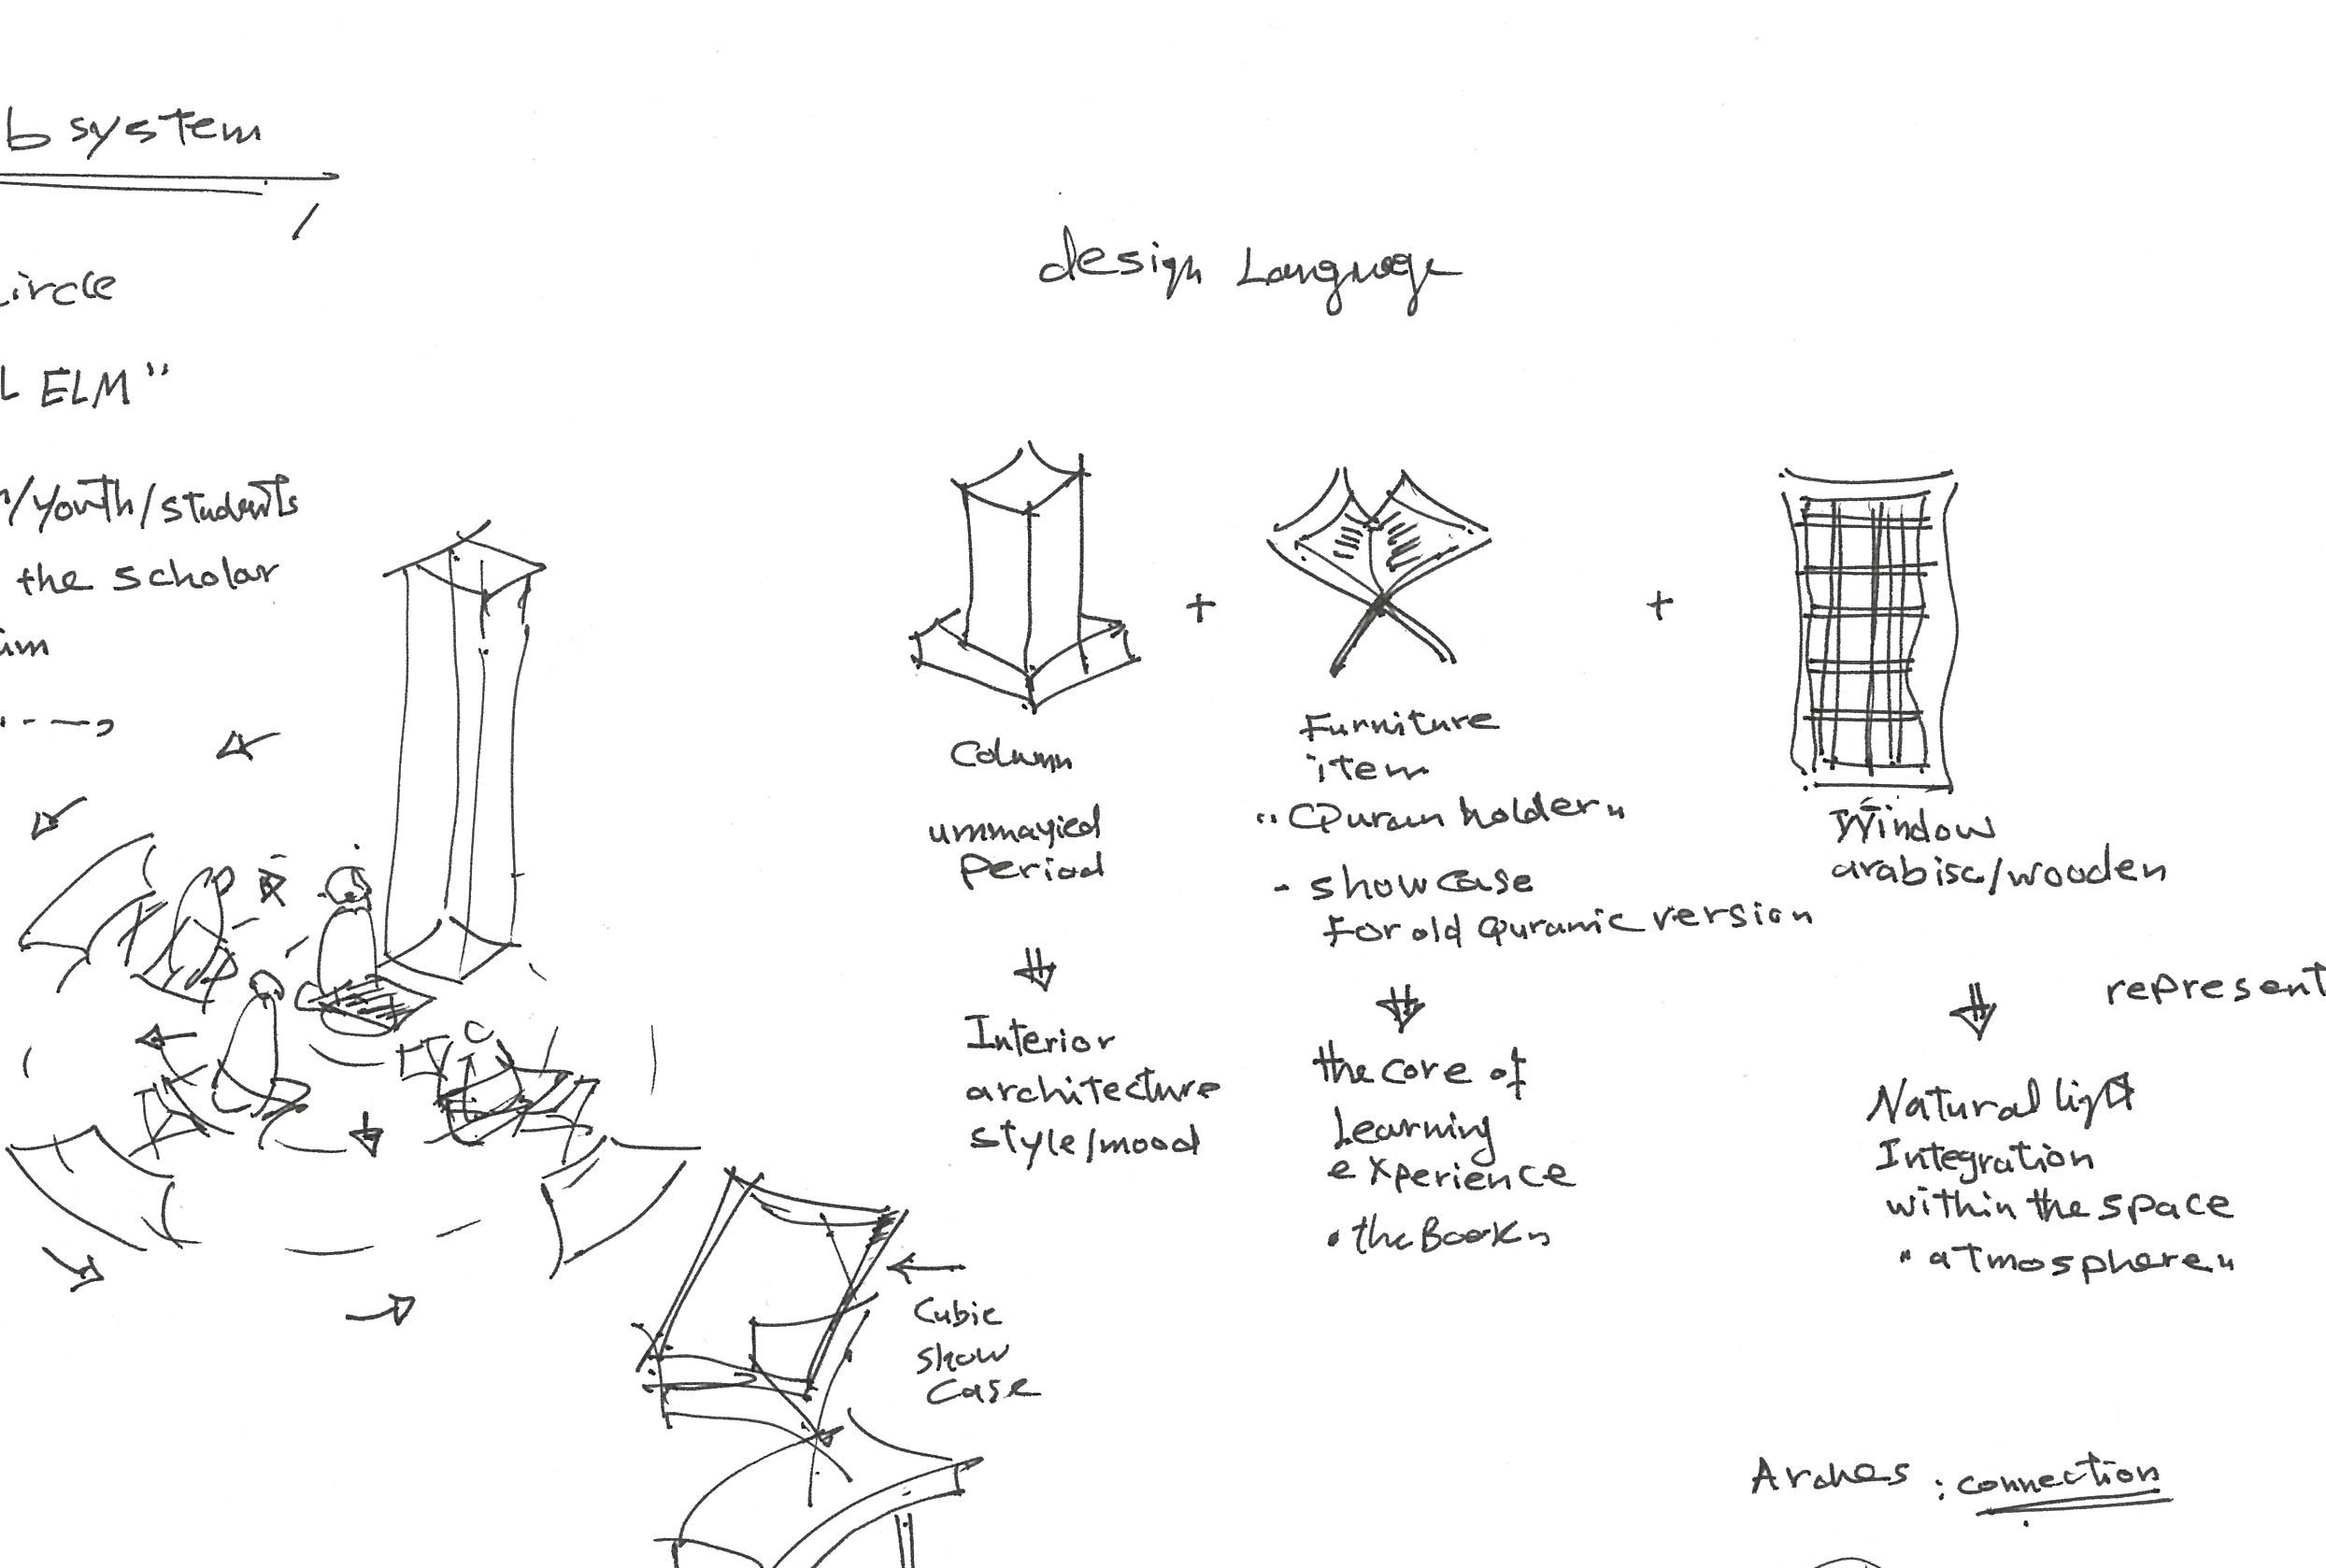 b system
circle
L ELM"
/Youth/students
the scholar
design Language
Column
ummayied
Period
+
Furniture
item
"Quran holder"
- showcase
For old Quranic version
+
Window
arabisc/wooden
Interior
architecture
style/mood
the core of
Learning
experience
"the Book"
represent
Natural light
Integration
within the space
"atmosphere"
Cubic
show
Case
Arches : connection